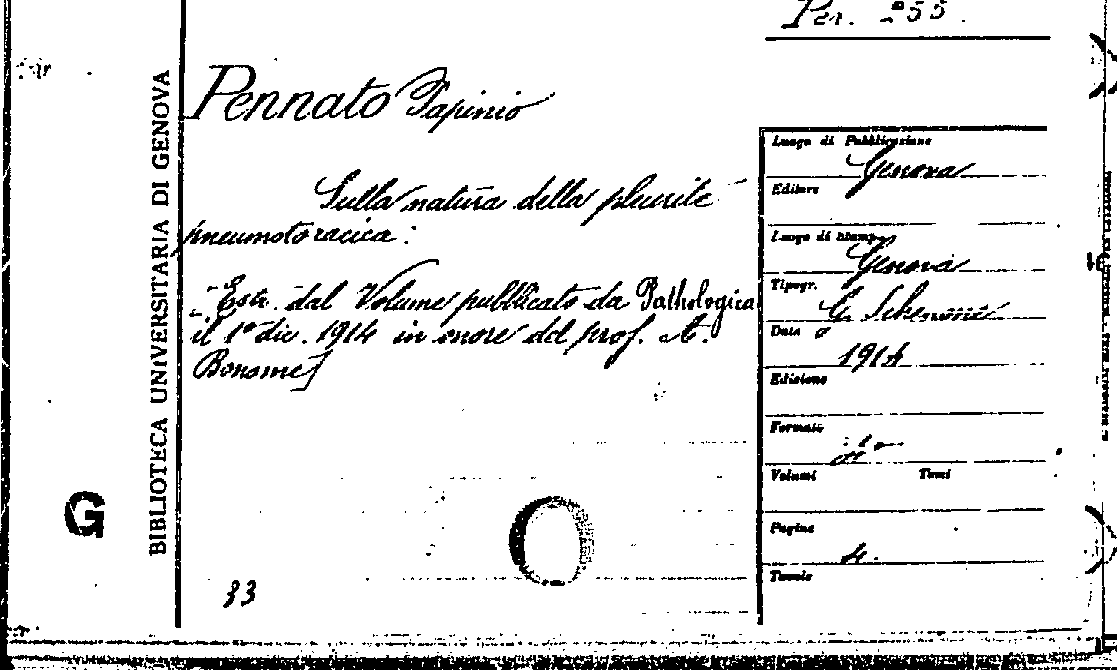 Per. 255.
BIBLIOTECA UNIVERSITARIA DI GENOVA
Pennato Papinio
Sulla natura della pleurite
pneumotoracica:
[Estr. dal Volume pubblicato da Pathologica
il 1º dic. 1914 in onore del prof. A.
Bonome]
G
33
Luogo di Pubblicazione
Genova
Editore
Luogo di stampa
Genova
Tipogr.
G. Schenone
Data
1914
Edizione
Formato
Volumi Tomi
Pagine
4.
Tavole